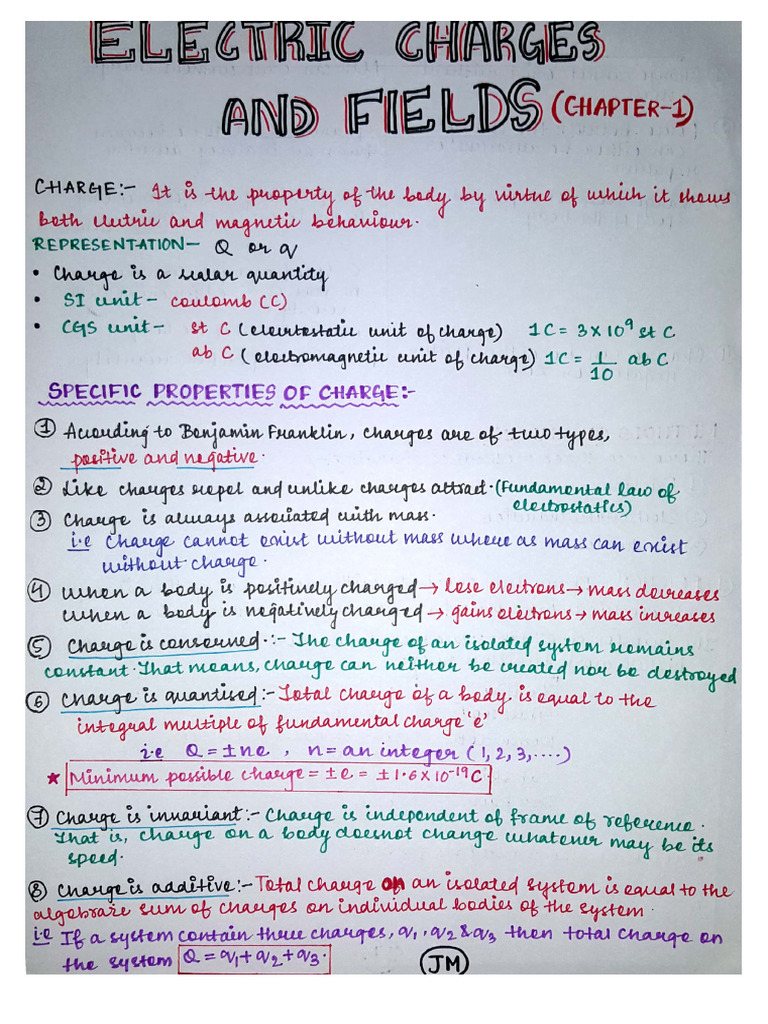 ELECTRIC CHARGES
AND FIELDS (CHAPTER-1)
CHARGE:- It is the property of the body by virtue of which it shows
both electric and magnetic behaviour.
REPRESENTATION- Q or q
• Charge is a scalar quantity
• SI unit - coulomb (C)
• CGS unit - st C (electrostatic unit of charge) 1C = 3 x 10⁹ st C
ab C (electromagnetic unit of charge) 1C = 1/10 ab C
SPECIFIC PROPERTIES OF CHARGE:-
① According to Benjamin Franklin, charges are of two types,
positive and negative.
② Like charges repel and unlike charges attract. (Fundamental law of
electrostatics)
③ Charge is always associated with mass.
i.e Charge cannot exist without mass where as mass can exist
without charge.
④ When a body is positively charged → lose electrons → mass decreases
When a body is negatively charged → gains electrons → mass increases
⑤ Charge is conserved:- The charge of an isolated system remains
constant. That means, charge can neither be created nor be destroyed
⑥ Charge is quantised:- Total charge of a body is equal to the
integral multiple of fundamental charge 'e'
i.e Q = ± ne , n = an integer (1, 2, 3, ....)
★ Minimum possible charge = ± e = ± 1.6 x 10⁻¹⁹ C.
⑦ Charge is invariant:- Charge is independent of frame of reference.
That is, charge on a body doesnot change whatever may be its
speed.
⑧ Charge is additive:- Total charge on an isolated system is equal to the
algebraic sum of charges on individual bodies of the system.
i.e If a system contain three charges, q₁, q₂ & q₃ then total charge on
the system Q = q₁ + q₂ + q₃.
JM